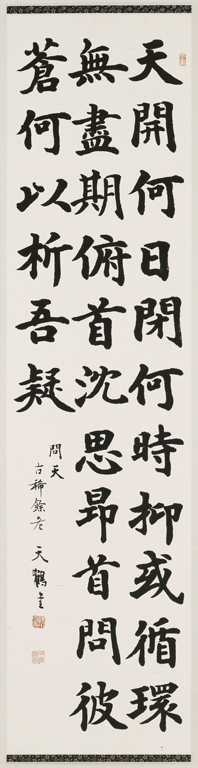 天開何日閉何時抑或循環
無盡期俯首沈思昂首問彼
蒼何以析吾疑
問天
古稀餘老 天鶴